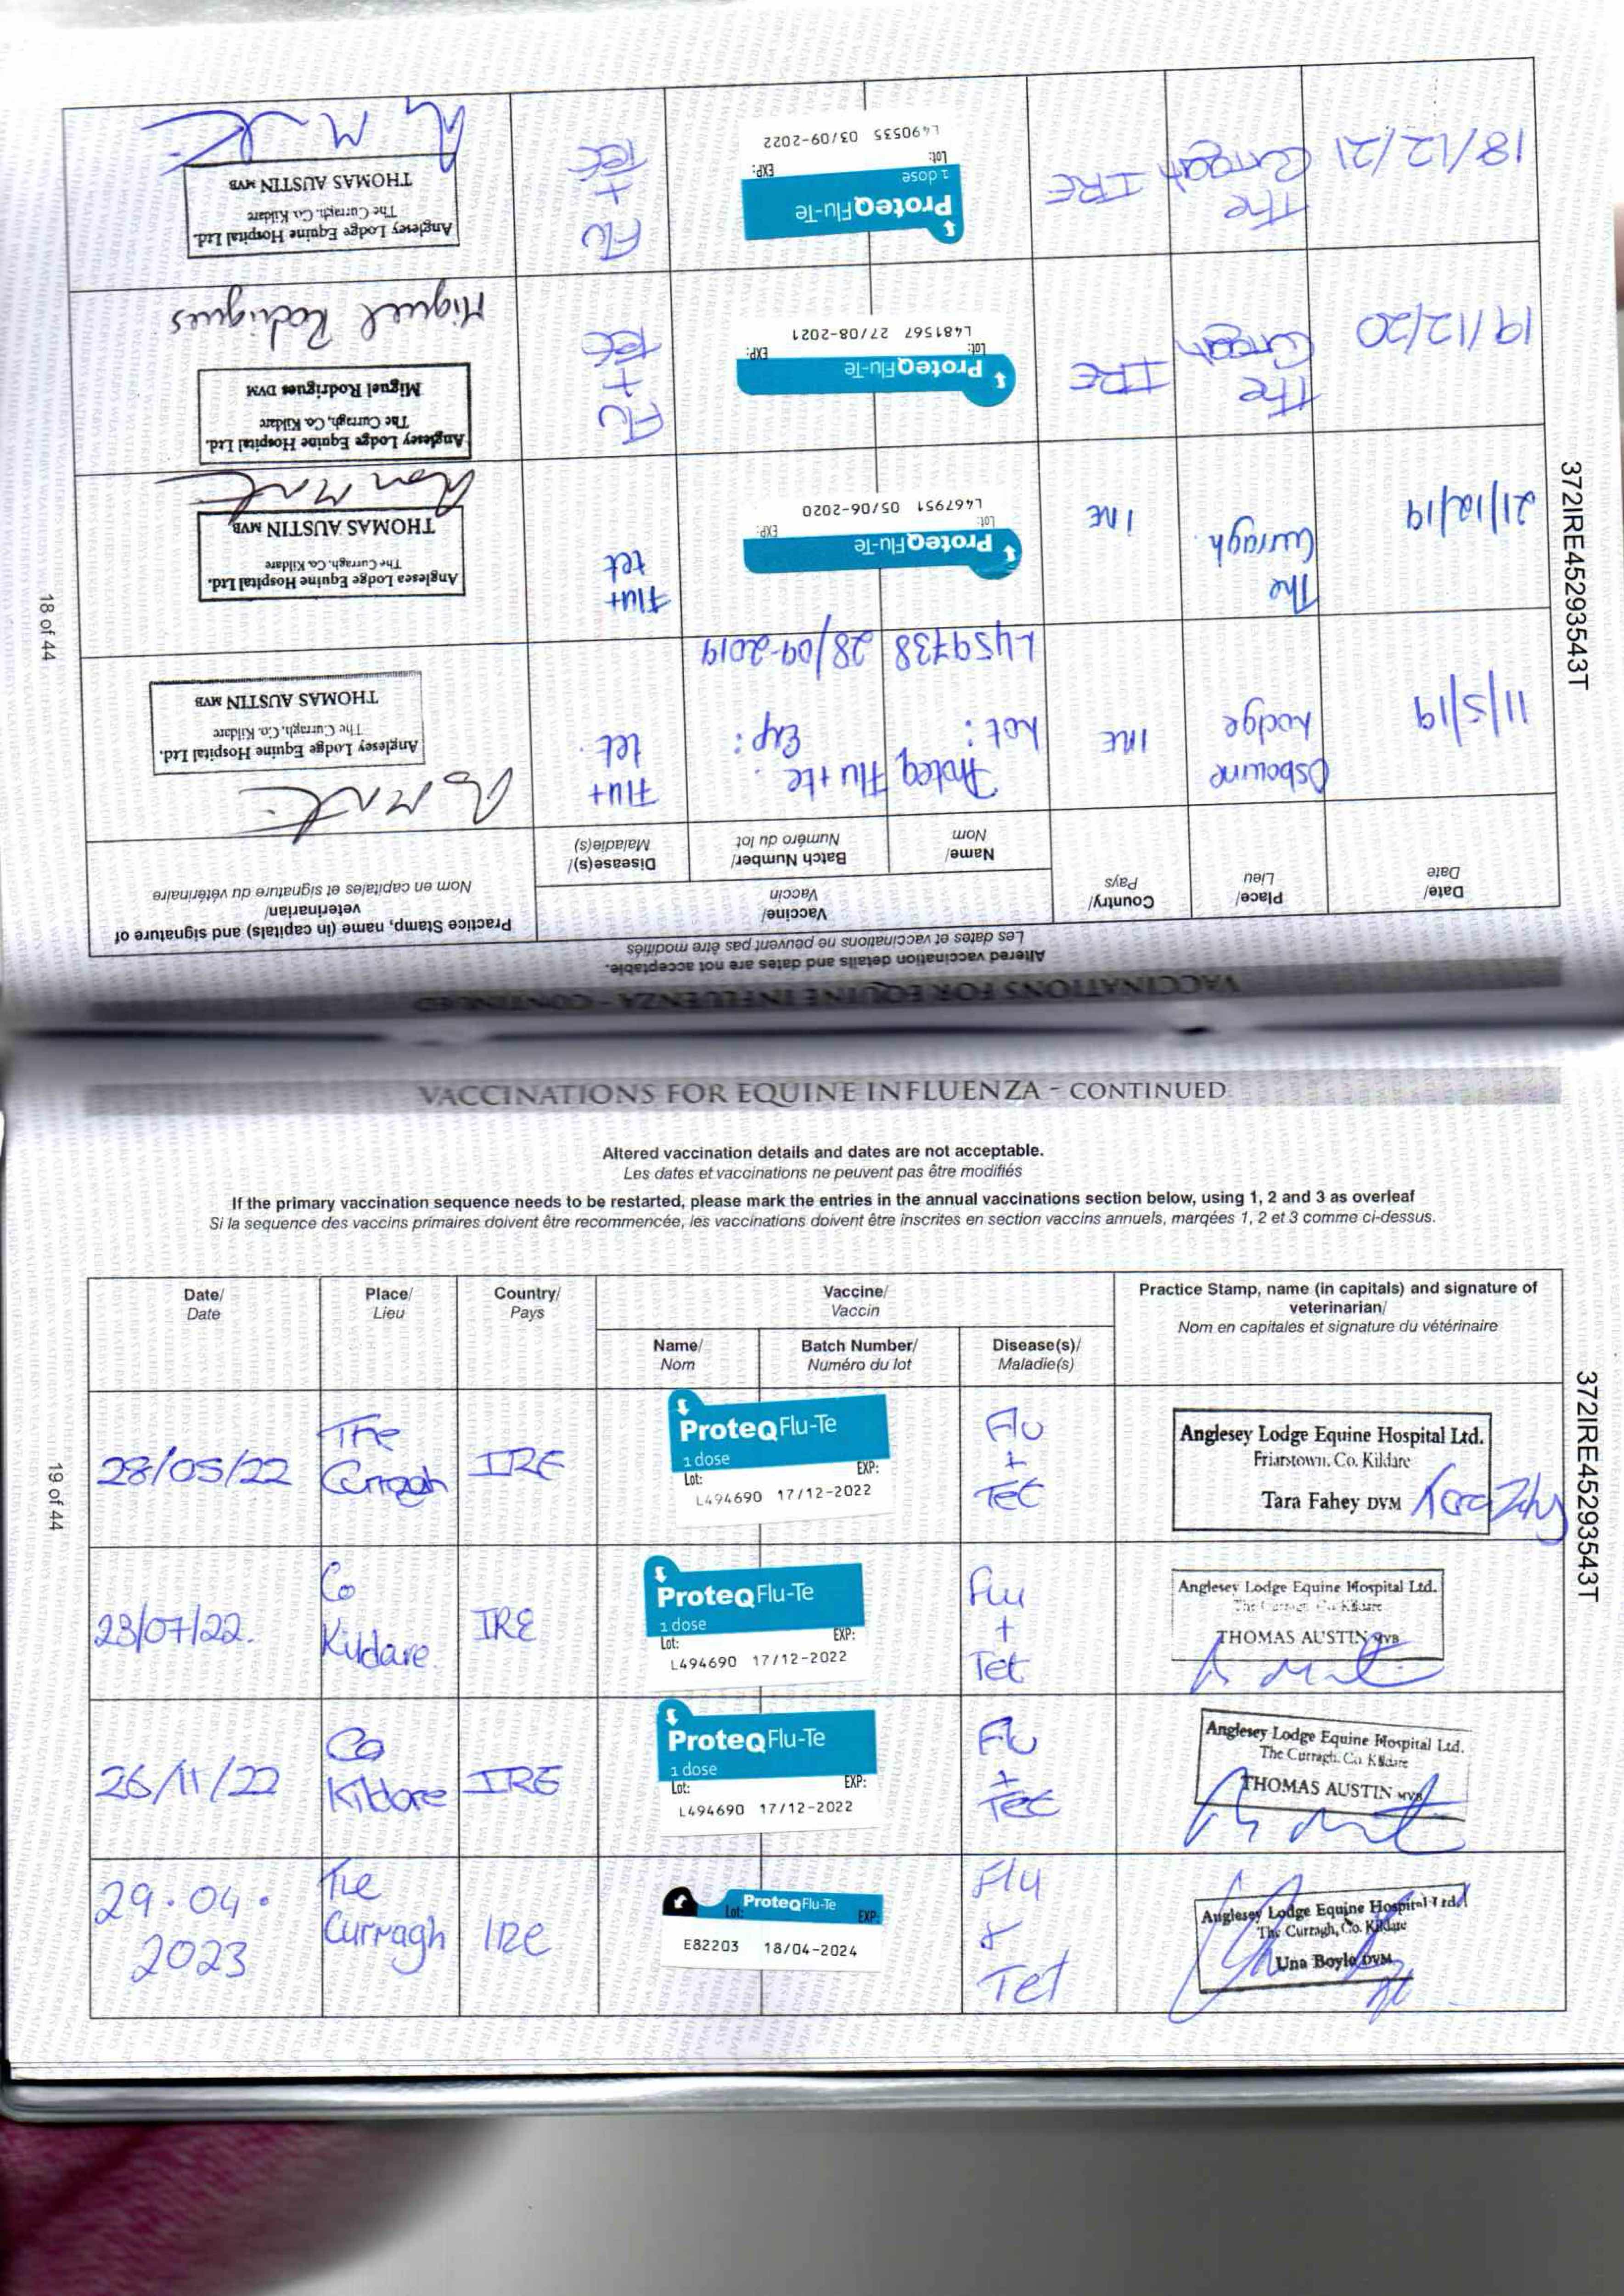 VACCINATIONS FOR EQUINE INFLUENZA - CONTINUED
Altered vaccination details and dates are not acceptable.
Les dates et vaccinations ne peuvent pas être modifiés
Date/
Date
Place/
Lieu
Country/
Pays
Vaccine/
Vaccin
Name/
Nom
Batch Number/
Numéro du lot
Disease(s)/
Maladie(s)
Practice Stamp, name (in capitals) and signature of
veterinarian/
Nom en capitales et signature du vétérinaire
11/5/19
Osbourne
Lodge
IRE
Proteq Flu+te.
Lot: Exp:
L459738 28/09-2019
Flu+
tet.
Anglesey Lodge Equine Hospital Ltd.
The Curragh, Co. Kildare
THOMAS AUSTIN MVB
21/12/19
The
Curragh.
IRE
ProteqFlu-Te
Lot: EXP:
L467951 05/06-2020
Flu+
tet
Anglesea Lodge Equine Hospital Ltd.
The Curragh, Co. Kildare
THOMAS AUSTIN MVB
19/12/20
The
Curragh
IRE
ProteqFlu-Te
Lot: EXP:
L481567 27/08-2021
Flu
+
Tet
Anglesey Lodge Equine Hospital Ltd.
The Curragh, Co Kildare
Miguel Rodrigues DVM
Miguel Rodrigues
18/12/21
The
Curragh
IRE
ProteqFlu-Te
1 dose
Lot: EXP:
L490535 03/09-2022
Flu
+
Tet
Anglesey Lodge Equine Hospital Ltd.
The Curragh, Co. Kildare
THOMAS AUSTIN MVB
18 of 44
372IRE45293543T
VACCINATIONS FOR EQUINE INFLUENZA - CONTINUED
Altered vaccination details and dates are not acceptable.
Les dates et vaccinations ne peuvent pas être modifiés
If the primary vaccination sequence needs to be restarted, please mark the entries in the annual vaccinations section below, using 1, 2 and 3 as overleaf
Si la sequence des vaccins primaires doivent être recommencée, les vaccinations doivent être inscrites en section vaccins annuels, marqées 1, 2 et 3 comme ci-dessus.
Date/
Date
Place/
Lieu
Country/
Pays
Vaccine/
Vaccin
Name/
Nom
Batch Number/
Numéro du lot
Disease(s)/
Maladie(s)
Practice Stamp, name (in capitals) and signature of
veterinarian/
Nom en capitales et signature du vétérinaire
28/05/22
The
Curragh
IRE
ProteqFlu-Te
1 dose
Lot: EXP:
L494690 17/12-2022
Flu
+
Tet
Anglesey Lodge Equine Hospital Ltd.
Friarstown, Co. Kildare
Tara Fahey DVM
Tara Fahey
23/07/22.
Co
Kildare.
IRE
ProteqFlu-Te
1 dose
Lot: EXP:
L494690 17/12-2022
Flu
+
Tet
Anglesey Lodge Equine Hospital Ltd.
The Curragh, Co. Kildare
THOMAS AUSTIN MVB
26/11/22
Co
Kildare
IRE
ProteqFlu-Te
1 dose
Lot: EXP:
L494690 17/12-2022
Flu
+
Tet
Anglesey Lodge Equine Hospital Ltd.
The Curragh, Co. Kildare
THOMAS AUSTIN MVB
29.04.
2023
The
Curragh
IRE
ProteqFlu-Te
Lot: EXP:
E82203 18/04-2024
Flu
&
Tet
Anglesey Lodge Equine Hospital Ltd.
The Curragh, Co. Kildare
Una Boyle DVM
19 of 44
372IRE45293543T